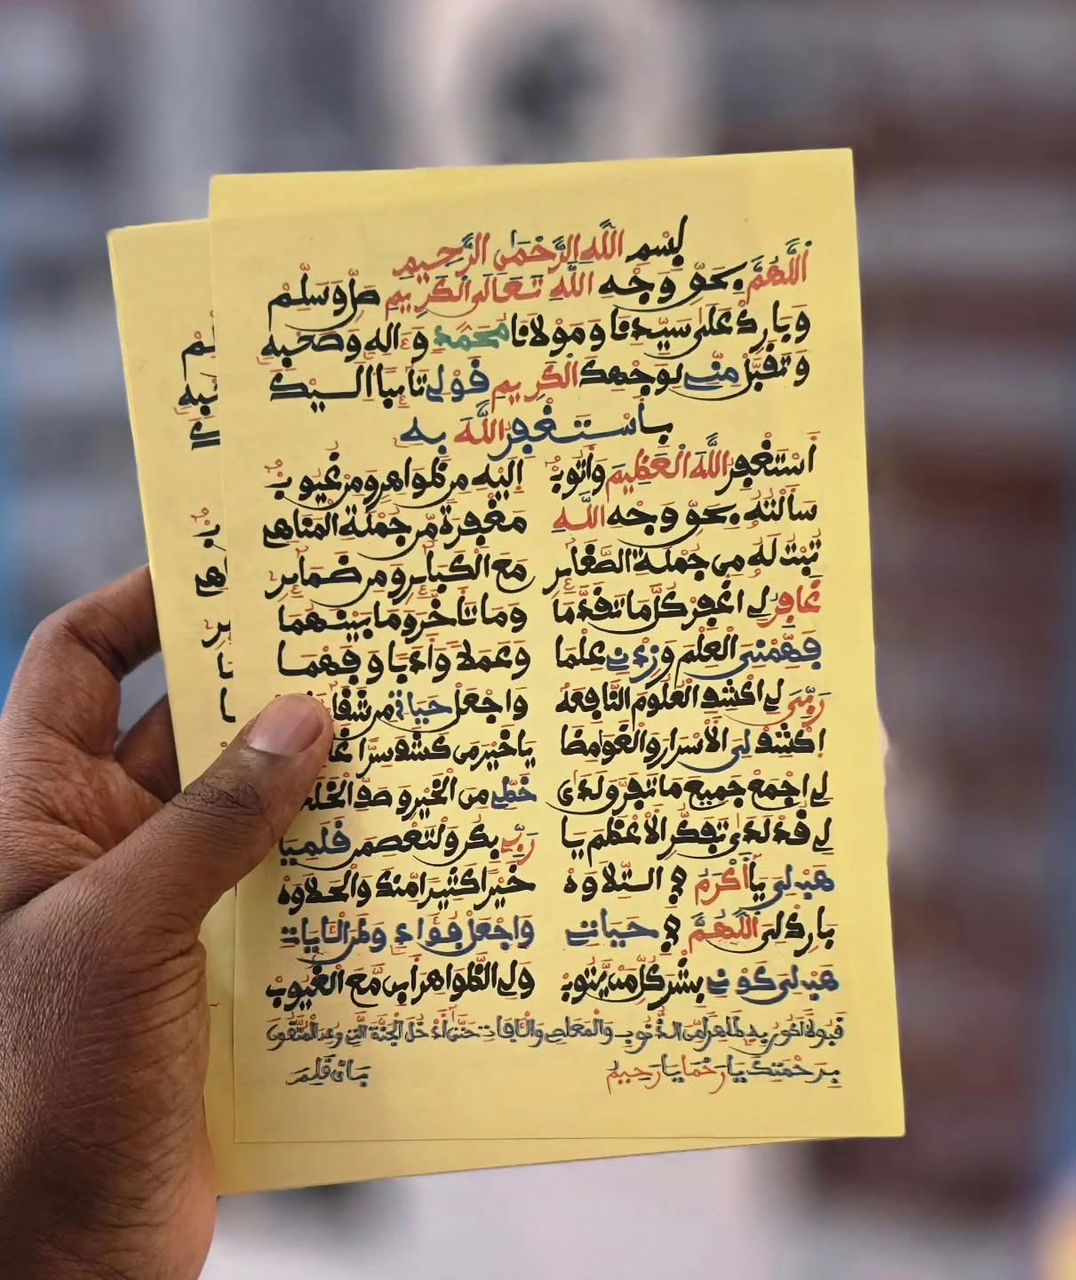 بِسْمِ اللَّهِ الرَّحْمَٰنِ الرَّحِيمِ
اَللَّهُمَّ بِحَقِّ وَجْهِ اللَّهِ تَعَالَى الْكَرِيمِ صَلِّ وَسَلِّمْ
وَبَارِكْ عَلَى سَيِّدِنَا وَمَوْلَانَا مُحَمَّدٍ وَءَالِهِ وَصَحْبِهِ
وَتَقَبَّلْ مِنِّي لِوَجْهِكَ الْكَرِيمِ قَوْلِي تَائِبًا إِلَيْكَ
بِأَسْتَغْفِرُ اللَّهَ بِهِ
أَسْتَغْفِرُ اللَّهَ الْعَظِيمَ وَأَتُوبُ إِلَيْهِ مِنْ ظَوَاهِرٍ وَمِنْ غُيُوبُ
سَأَلْتُهُ بِحَقِّ وَجْهِ اللَّهِ مَغْفِرَةً مِّنْ جُمْلَةِ الْمَنَاهِ
تُبْتُ لَهُ مِنْ جُمْلَةِ الصَّغَائِرِ مَعَ الْكَبَائِرِ وَمِنْ ضَمَائِرِ
غَافِرُ لِي اغْفِرْ كُلَّ مَا تَقَدَّمَا وَمَا تَأَخَّرَ وَمَا بَيْنَهُمَا
فَهِّمْنِيَ الْعِلْمَ وَزِدْنِي عِلْمَا وَعَمَلًا وَأَدَبًا وَفَهْمَا
رَبِّيَ لِي اكْشِفِ الْعُلُومَ النَّافِعَهْ وَاجْعَلْ حَيَاتِي مِنْ
اِكْشِفْ لِيَ الْأَسْرَارَ وَالْغَوَامِضَا يَا خَيْرَ مَنْ كَشَفَ سِرًّا
لِي اجْمَعْ جَمِيعَ مَا تَفَرَّقَ لَدَى خَطِّي مِنَ الْخَيْرِ وَصَفِّ
لِي قُدْ لَدَى تَفَكُّرِ الْأَعْظَمِ يَا رَبِّ بِكُنْ وَلْتَعْصِمَنْ قَلَمِيَا
هَبْ لِيَ يَا أَكْرَمُ فِي التِّلَاوَهْ خَيْرًا كَثِيرًا مِنْكَ وَالْحَلَاوَهْ
بَارِكْ لِيَ اللَّهُمَّ فِي حَيَاتِي وَاجْعَلْ فُؤَادِي وَطَرَ الْآيَاتِ
هَبْ لِيَ كَوْنِي بِشْرَ كُلِّ مَنْ يَتُوبْ وَلِي الظَّوَاهِرَ أَبِنْ مَّعَ الْغُيُوبْ
بِرَحْمَتِكَ يَا رَحْمَانُ يَا رَحِيمُ